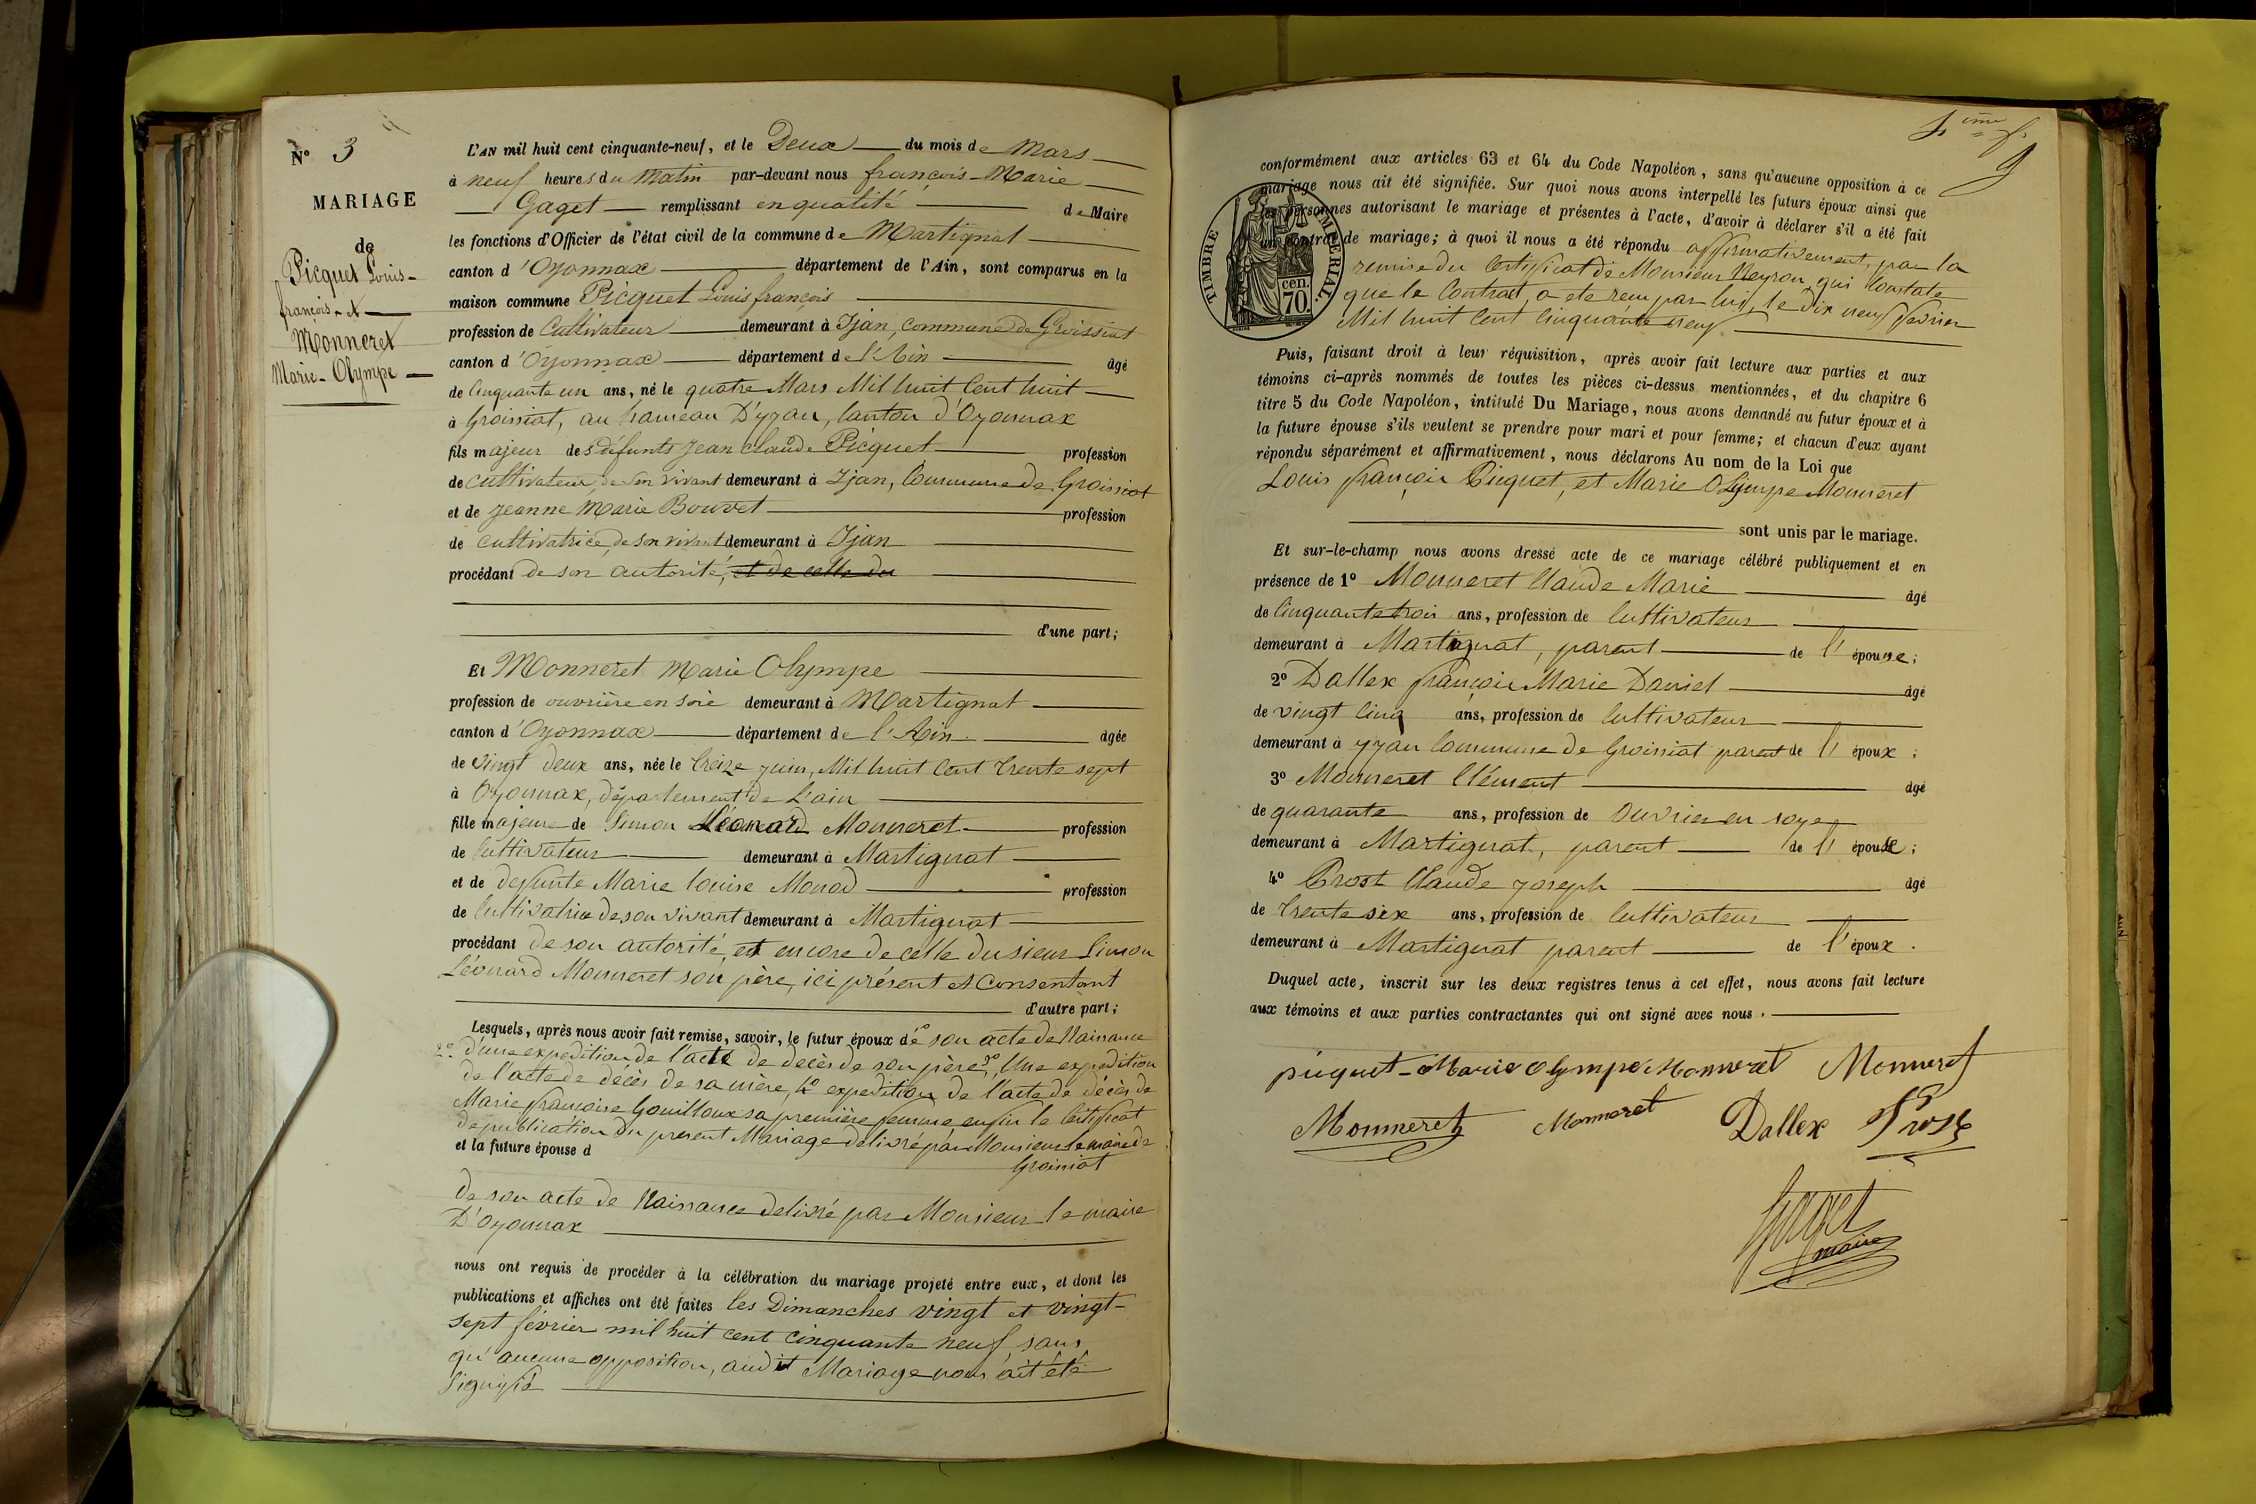 N° 3
MARIAGE
de
Picquet Louis-
françois - et
Monneret
Marie - Olympe
L'AN mil huit cent cinquante-neuf, et le Deux du mois de Mars
à neuf heures du Matin par-devant nous françois - Marie
Gaget remplissant en qualité de Maire
les fonctions d'Officier de l'état civil de la commune de Martignat
canton d'Oyonnax département de l'Ain, sont comparus en la
maison commune Picquet Louis françois
profession de Cultivateur demeurant à Ijan, commune de Groissiat
canton d'Oyonnax département de l'Ain âgé
de Cinquante un ans, né le quatre Mars Mil huit Cent huit
à Groissiat, au hameau D'yzan, canton d'Oyonnax
fils majeur des défunts Jean Claude Picquet profession
de cultivateur, de son vivant demeurant à Ijan, Commune de Groissiat
et de Jeanne Marie Bouvet profession
de cultivatrice, de son vivant demeurant à Ijan
procédant de son autorité, et de celle du
d'une part;
Et Monneret Marie Olympe
profession de ouvrière en soie demeurant à Martignat
canton d'Oyonnax département de l'Ain âgée
de Vingt deux ans, née le treize juin, Mil huit Cent trente sept
à Oyonnax, département de L'ain
fille majeure de Simon Léonard Monneret profession
de Cultivateur demeurant à Martignat
et de defunte Marie louise Monod profession
de Cultivatrice de son vivant demeurant à Martignat
procédant de son autorité, et encore de celle du sieur Simon
Léonard Monneret son père, ici présent et consentant
d'autre part;
Lesquels, après nous avoir fait remise, savoir, le futur époux de 1° son acte de Naissance
2° d'une expedition de l'acte de decès de son père, 3° Une expedition
de l'acte de décès de sa mère, 4° expedition de l'acte de décès de
Marie françoise Gouilloux sa première femme, enfin le Certificat
de publication du présent Mariage délivré par Monsieur le maire de
Groissiat
et la future épouse d
de son acte de Naissance delivré par Monsieur le maire
D'oyonnax
nous ont requis de procéder à la célébration du mariage projeté entre eux, et dont les
publications et affiches ont été faites les Dimanches vingt et vingt-
sept février mil huit cent cinquante neuf, sans
qu'aucune opposition, audit Mariage nous ait été
signifié
conformément aux articles 63 et 64 du Code Napoléon, sans qu'aucune opposition à ce
mariage nous ait été signifiée. Sur quoi nous avons interpellé les futurs époux ainsi que
les personnes autorisant le mariage et présentes à l'acte, d'avoir à déclarer s'il a été fait
un contrat de mariage; à quoi il nous a été répondu affirmativement, par la
remise du Certificat de Monsieur Neyron, qui Constate
que le Contrat, a été reçu par lui, le dix neuf février
Mil huit Cent Cinquante neuf.
TIMBRE IMPERIAL.
cen.
70.
Puis, faisant droit à leur réquisition, après avoir fait lecture aux parties et aux
témoins ci-après nommés de toutes les pièces ci-dessus mentionnées, et du chapitre 6
titre 5 du Code Napoléon, intitulé Du Mariage, nous avons demandé au futur époux et à
la future épouse s'ils veulent se prendre pour mari et pour femme; et chacun d'eux ayant
répondu séparément et affirmativement, nous déclarons Au nom de la Loi que
Louis françois Picquet, et Marie Olympe Monneret
sont unis par le mariage.
Et sur-le-champ nous avons dressé acte de ce mariage célébré publiquement et en
présence de 1° Monneret Claude Marie âgé
de Cinquante trois ans, profession de Cultivateur
demeurant à Martignat, parent de l'épouse;
2° Dallex françois Marie Daniel âgé
de vingt Cinq ans, profession de Cultivateur
demeurant à yzan Commune de Groissiat parent de l'époux;
3° Monneret Clément âgé
de quarante ans, profession de Ouvrier en soye
demeurant à Martignat, parent de l'épouse;
4° Prost Claude joseph âgé
de trente six ans, profession de Cultivateur
demeurant à Martignat parent de l'époux.
Duquel acte, inscrit sur les deux registres tenus à cet effet, nous avons fait lecture
aux témoins et aux parties contractantes qui ont signé avec nous.
picquet - Marie Olympe Monneret Monneret
Monneret Monneret Dallex Prost
Gaget
maire